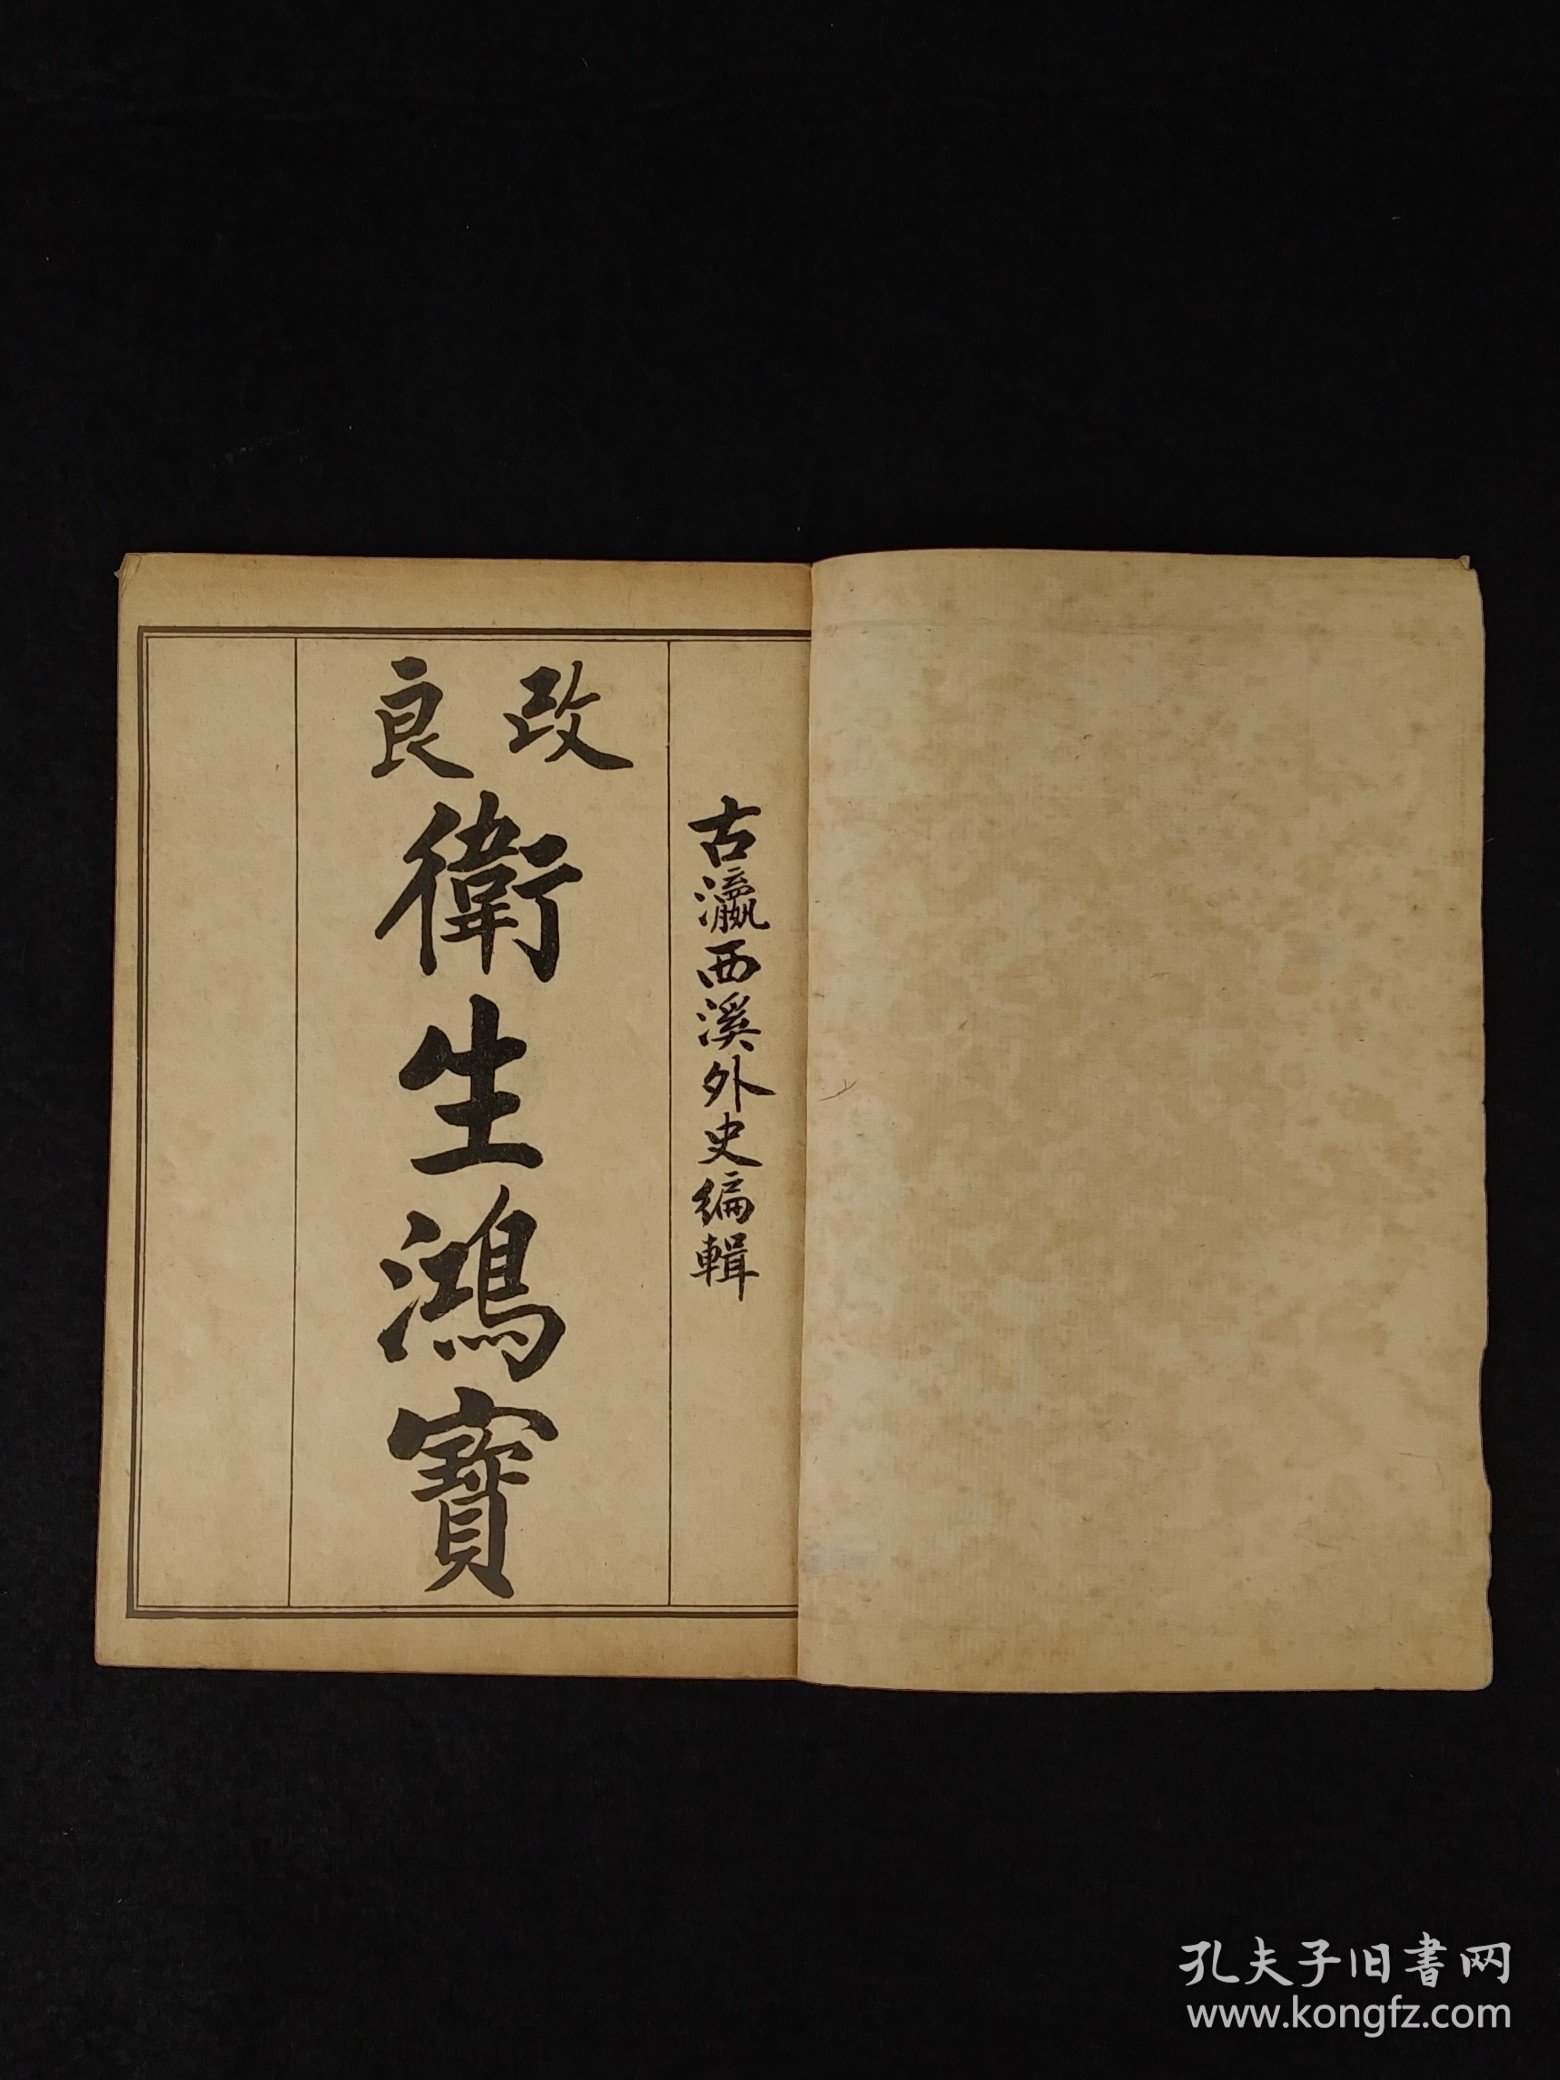 古瀛西溪外史編輯
改良
衛生鴻寶
孔夫子旧書网
www.kongfz.com